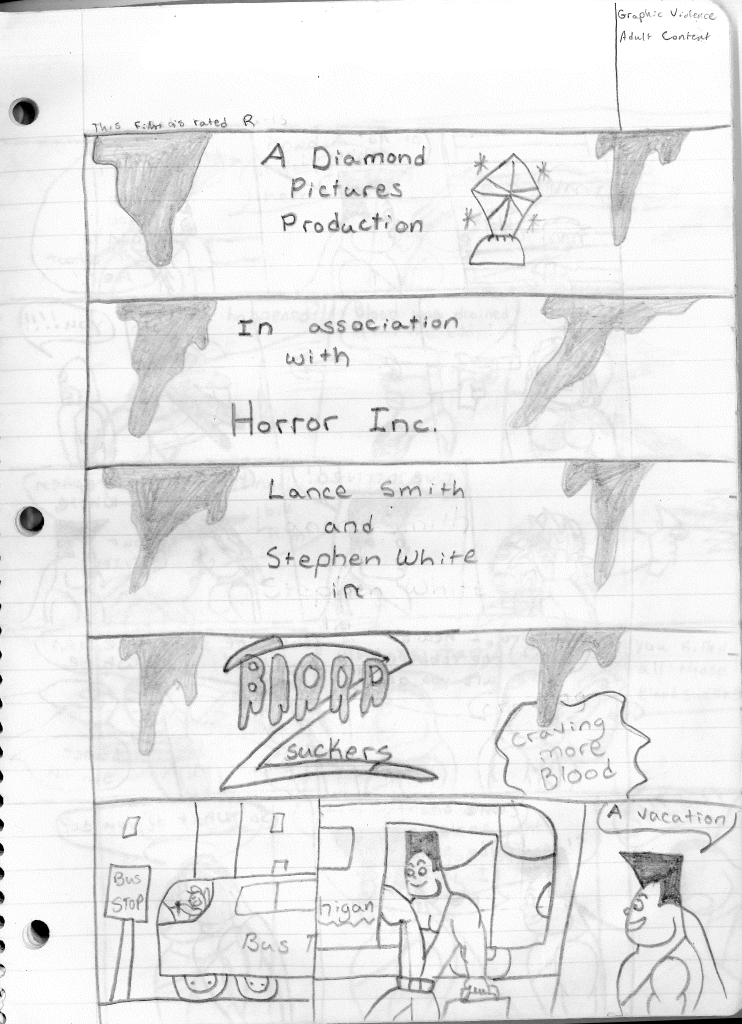 Graphic Violence
Adult Content
This Film is rated R
A Diamond
Pictures
Production
In association
with
Horror Inc.
Lance Smith
and
Stephen White
in
Blood
2
suckers
craving
more
Blood
Bus
STOP
Bus T
higan
A vacation